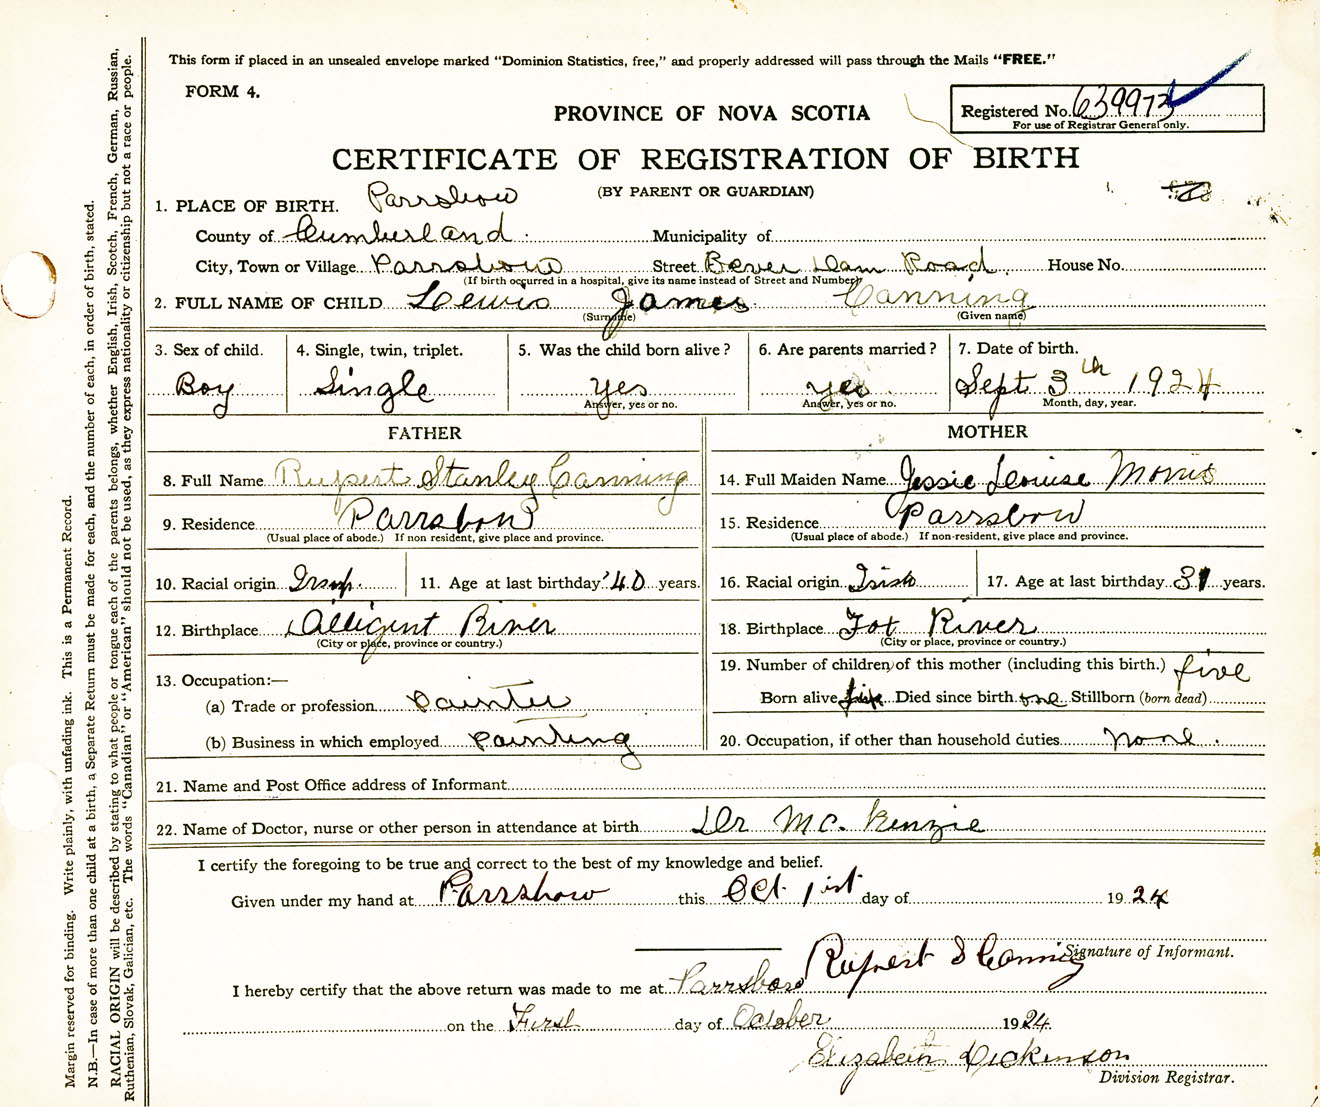 This form if placed in an unsealed envelope marked "Dominion Statistics, free," and properly addressed will pass through the Mails "FREE."
FORM 4.
PROVINCE OF NOVA SCOTIA
Registered No. 639973
For use of Registrar General only.
CERTIFICATE OF REGISTRATION OF BIRTH
(BY PARENT OR GUARDIAN)
1. PLACE OF BIRTH. Parrsboro
County of Cumberland Municipality of
City, Town or Village Parrsboro Street Bever Dam Road House No.
(If birth occurred in a hospital, give its name instead of Street and Number)
2. FULL NAME OF CHILD Lewis James Canning
(Surname) (Given name)
3. Sex of child. 4. Single, twin, triplet. 5. Was the child born alive? 6. Are parents married? 7. Date of birth.
Boy Single yes yes Sept 3th 1924
Answer, yes or no. Answer, yes or no. Month, day, year.
FATHER MOTHER
8. Full Name Rupert Stanley Canning
14. Full Maiden Name Jessie Louise Morris
9. Residence Parrsboro
(Usual place of abode.) If non resident, give place and province.
15. Residence Parrsboro
(Usual place of abode.) If non-resident, give place and province.
10. Racial origin 11. Age at last birthday 40 years.
16. Racial origin Irish 17. Age at last birthday 31 years.
12. Birthplace Alligent River
(City or place, province or country.)
18. Birthplace Fox River
(City or place, province or country.)
13. Occupation:—
(a) Trade or profession painter
(b) Business in which employed painting
19. Number of children of this mother (including this birth.) five
Born alive Died since birth one Stillborn (born dead)
20. Occupation, if other than household duties none.
21. Name and Post Office address of Informant
22. Name of Doctor, nurse or other person in attendance at birth Dr Mc. Kenzie
I certify the foregoing to be true and correct to the best of my knowledge and belief.
Given under my hand at Parrsboro this Oct 1st day of 1924
Rupert S Canning
Signature of Informant.
I hereby certify that the above return was made to me at Parrsboro
on the First day of October 1924
Elizabeth Dickenson
Division Registrar.
Margin reserved for binding. Write plainly, with unfading ink. This is a Permanent Record.
N.B.—In case of more than one child at a birth, a Separate Return must be made for each, and the number of each, in order of birth, stated.
RACIAL ORIGIN will be described by stating to what people or tongue each of the parents belongs, whether English, Irish, Scotch, French, German, Russian,
Ruthenian, Slovak, Galician, etc. The words "Canadian" or "American" should not be used, as they express nationality or citizenship but not a race or people.